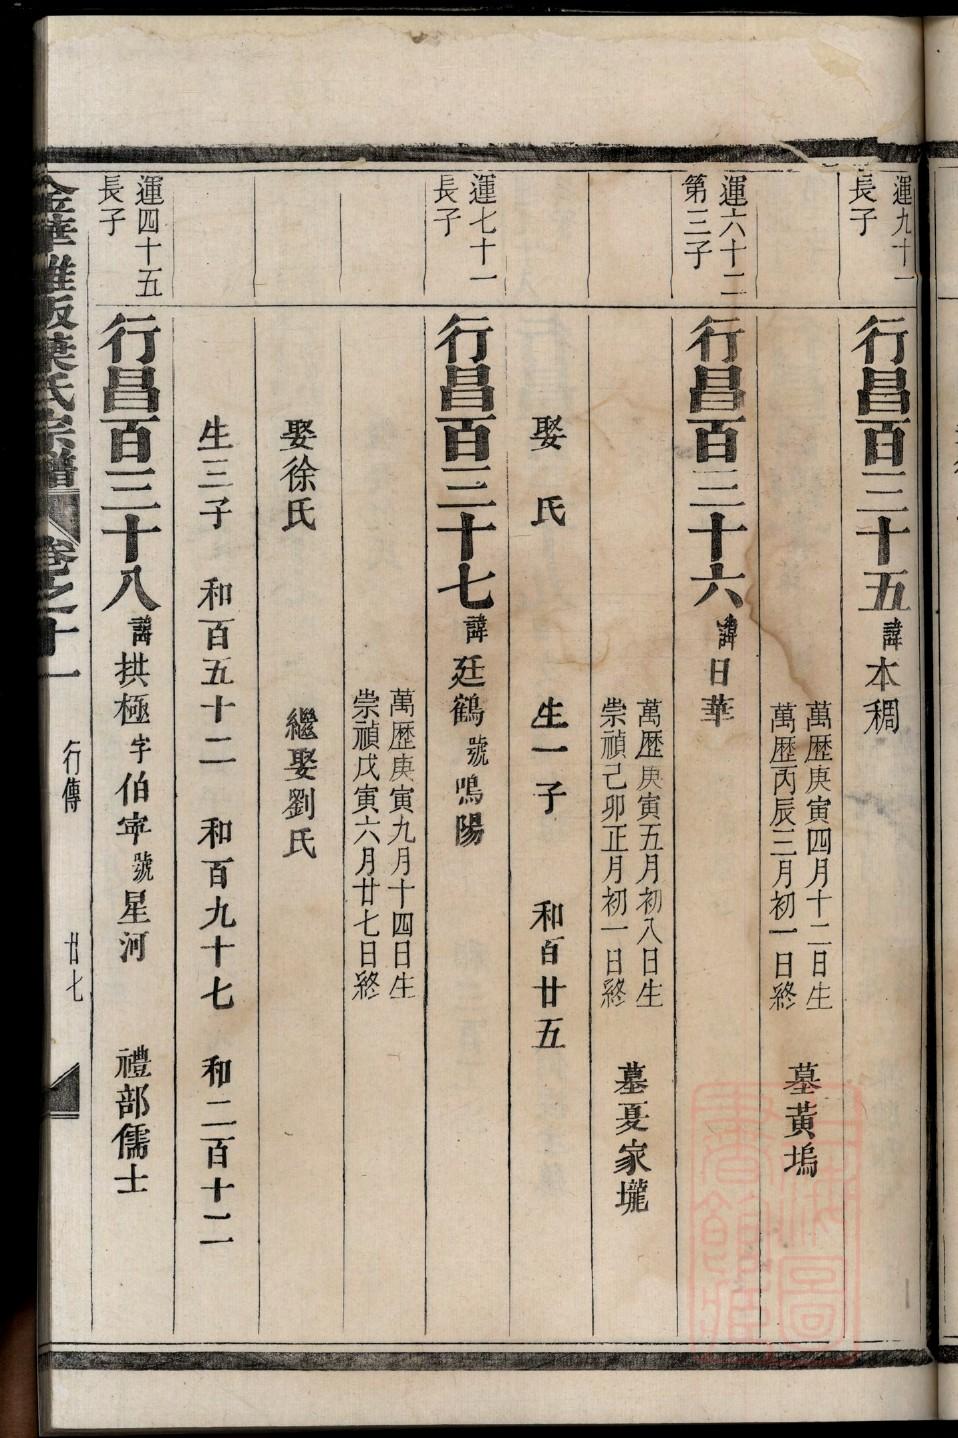 運九十一
長子
行昌百三十五諱本稠
萬歷庚寅四月十二日生
萬歷丙辰三月初一日終
墓黃塢
運六十二
第三子
行昌百三十六諱日華
萬歷庚寅五月初八日生
崇禎己卯正月初一日終
墓夏家壠
娶 氏 生一子 和百廿五
運七十一
長子
行昌百三十七諱廷鶴號鳴陽
萬歷庚寅九月十四日生
崇禎戊寅六月廿七日終
娶徐氏 繼娶劉氏
生三子 和百五十二 和百九十七 和二百十二
運四十五
長子
行昌百三十八諱拱極字伯宰號星河 禮部儒士
金華 氏宗譜 卷之十一 行傳 廿七